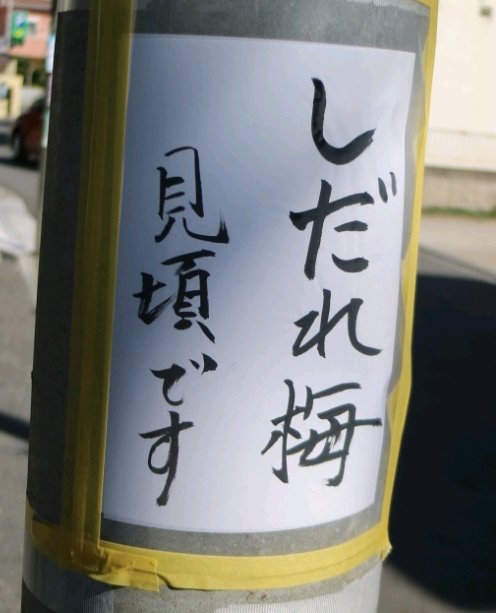 しだれ梅
見頃です